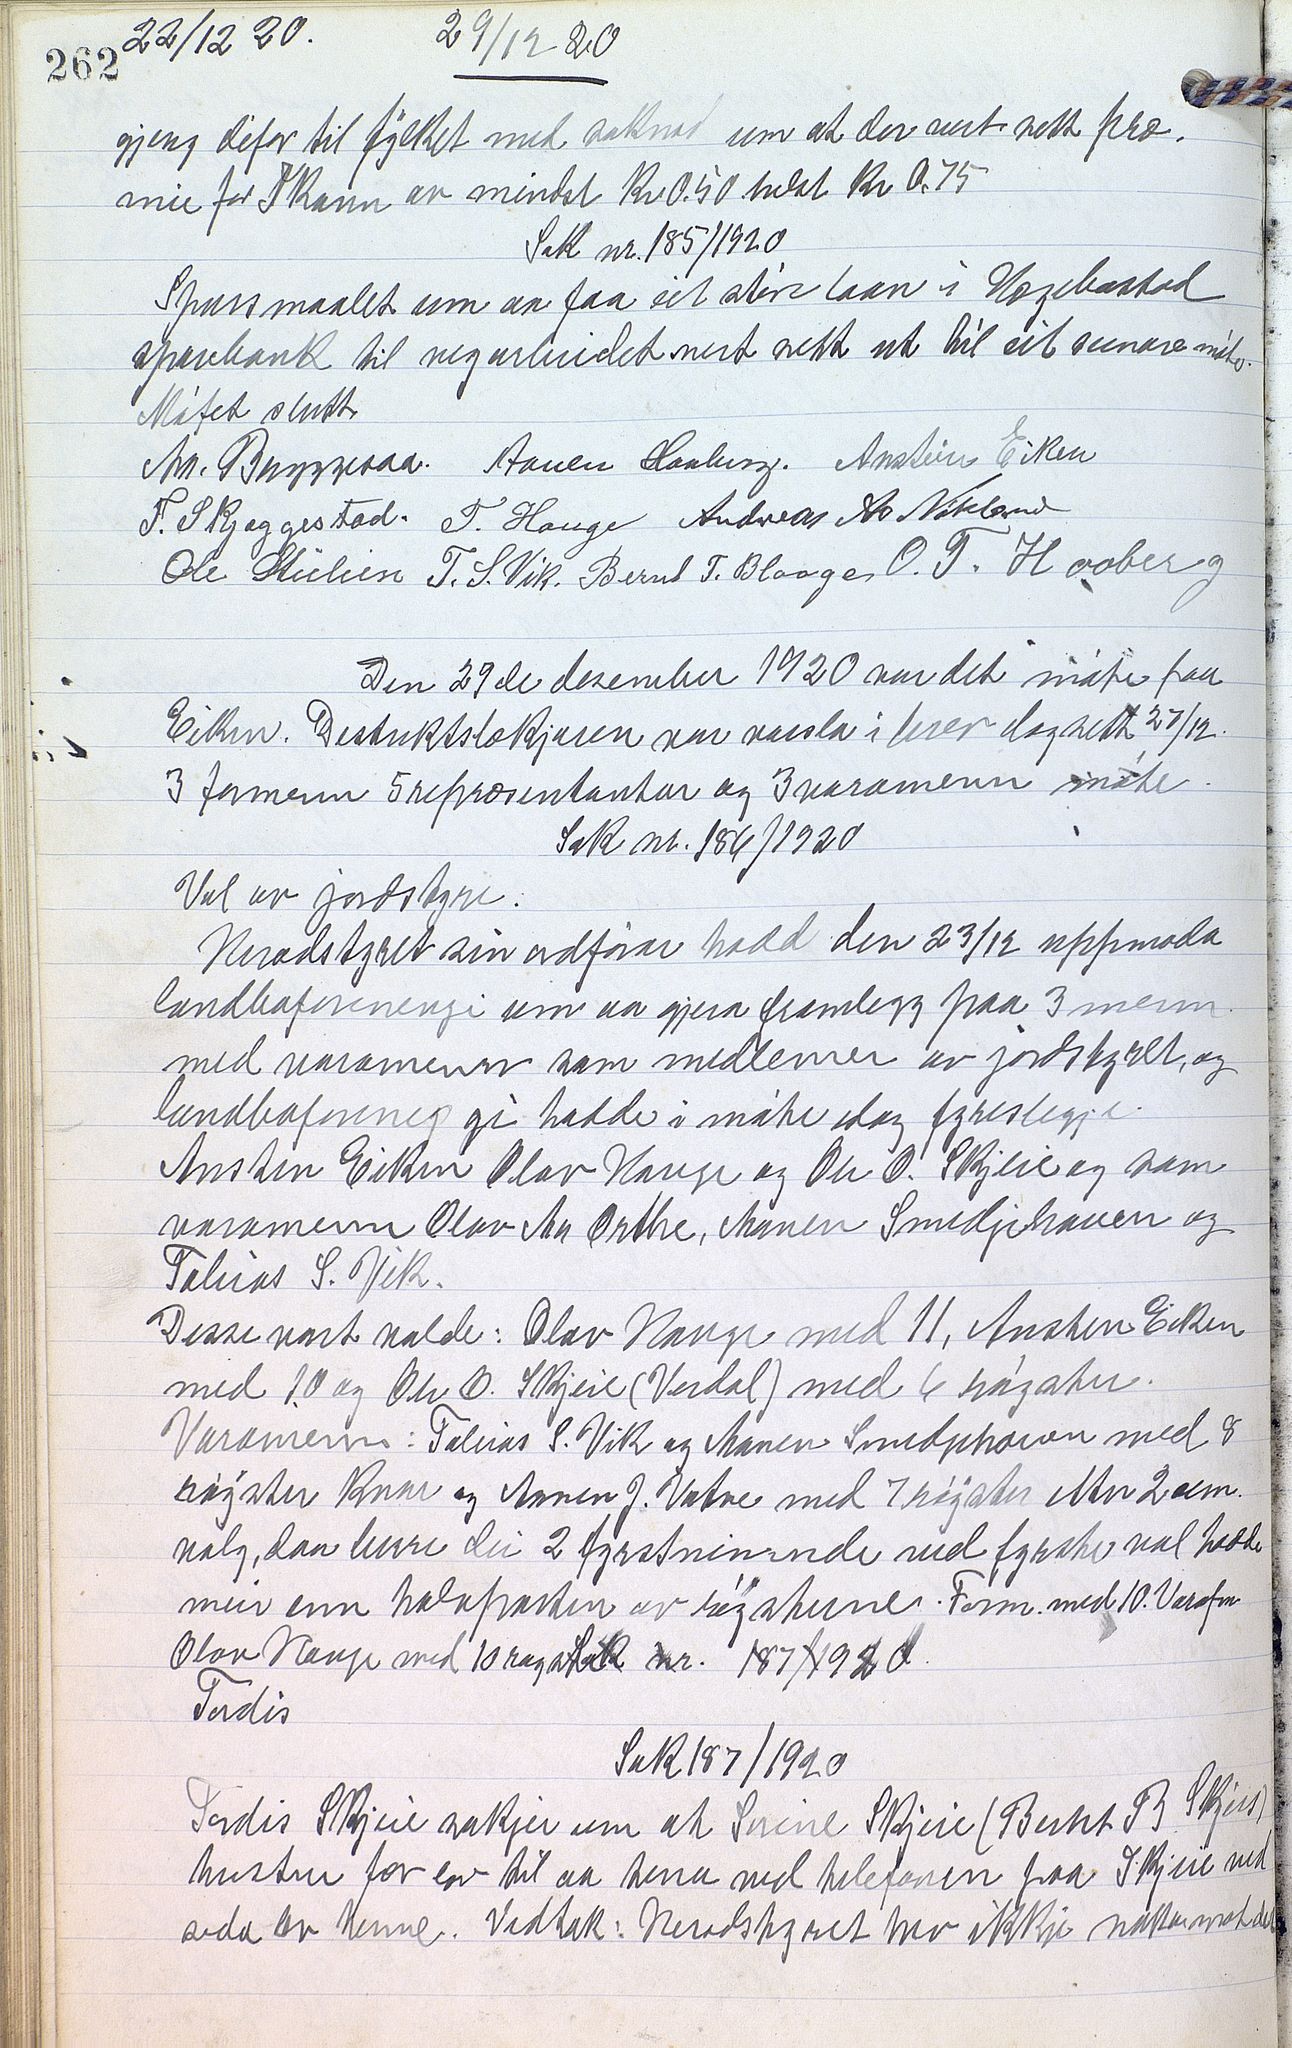 262 22/12 20. 29/12 20
gjeng difor til fylket med søknad um at der vert sett præ-
mie for Skarv av mindst Kr 0.50 helst Kr 0.75
Sak nr. 185/1920
Spursmaalet um aa faa eit større laan i Hægebostad
sparebank til vegarbeidet vert sett ut til eit seinare møte.
Møtet slutt.
An. Bryggesaa. Aanen Haaberg. Anstein Eiken
T. Skjeggestad. T. Hauge Andreas As Nækland
Ole T. S. Vik. Bernt T. Hooberg
Den 29de desember 1920 var det møte paa
Eiken. Destriktslækjaren var varsla i brev dagsett 27/12.
3 formenn 5 representantar og 3 varamenn møtte.
Sak nr. 186/1920
Val av jordstyre.
Heradstyret sin ordførar hadd den 23/12 uppmoda
landboforenengi um aa gjera framlegg paa 3 menn
med varamenn som medlemer av jordstyret, og
landboforenengi hadde i møte idag fyreslegje
Ansten Eiken Olav Hauge og Ole O. Skjeie og som
varamenn Olav An Ortke, Aanen Smedjehauen og
Tobias S. Vik.
Desse vart valde: Olav Hauge med 11, Ansten Eiken
med 10 og Ole O. Skjeie (Verdal) med 6 røyster.
Varamenn: Tobias S. Vik og Aanen Smedjehauen med 8
røyster kvar og Aanen J. Vatne med 7 røyster etter 2 om
valg, daa berre dei 2 fyrstnemnde ved fyrste val hadde
meir enn halvparten av røysterne. Form. med 10. Varafm
Olav Hauge med 10 røyst Sak nr. 187/1920.
Tordis
Sak 187/1920
Tordis Skjeie søkjer um at Serine Skjeie (Berht B Skjeies)
hustru fær lov til aa tena ved telefonen paa Skjeie ved
sida av henne. Vedtak: Heradstyret hev ikkje nøko imot det